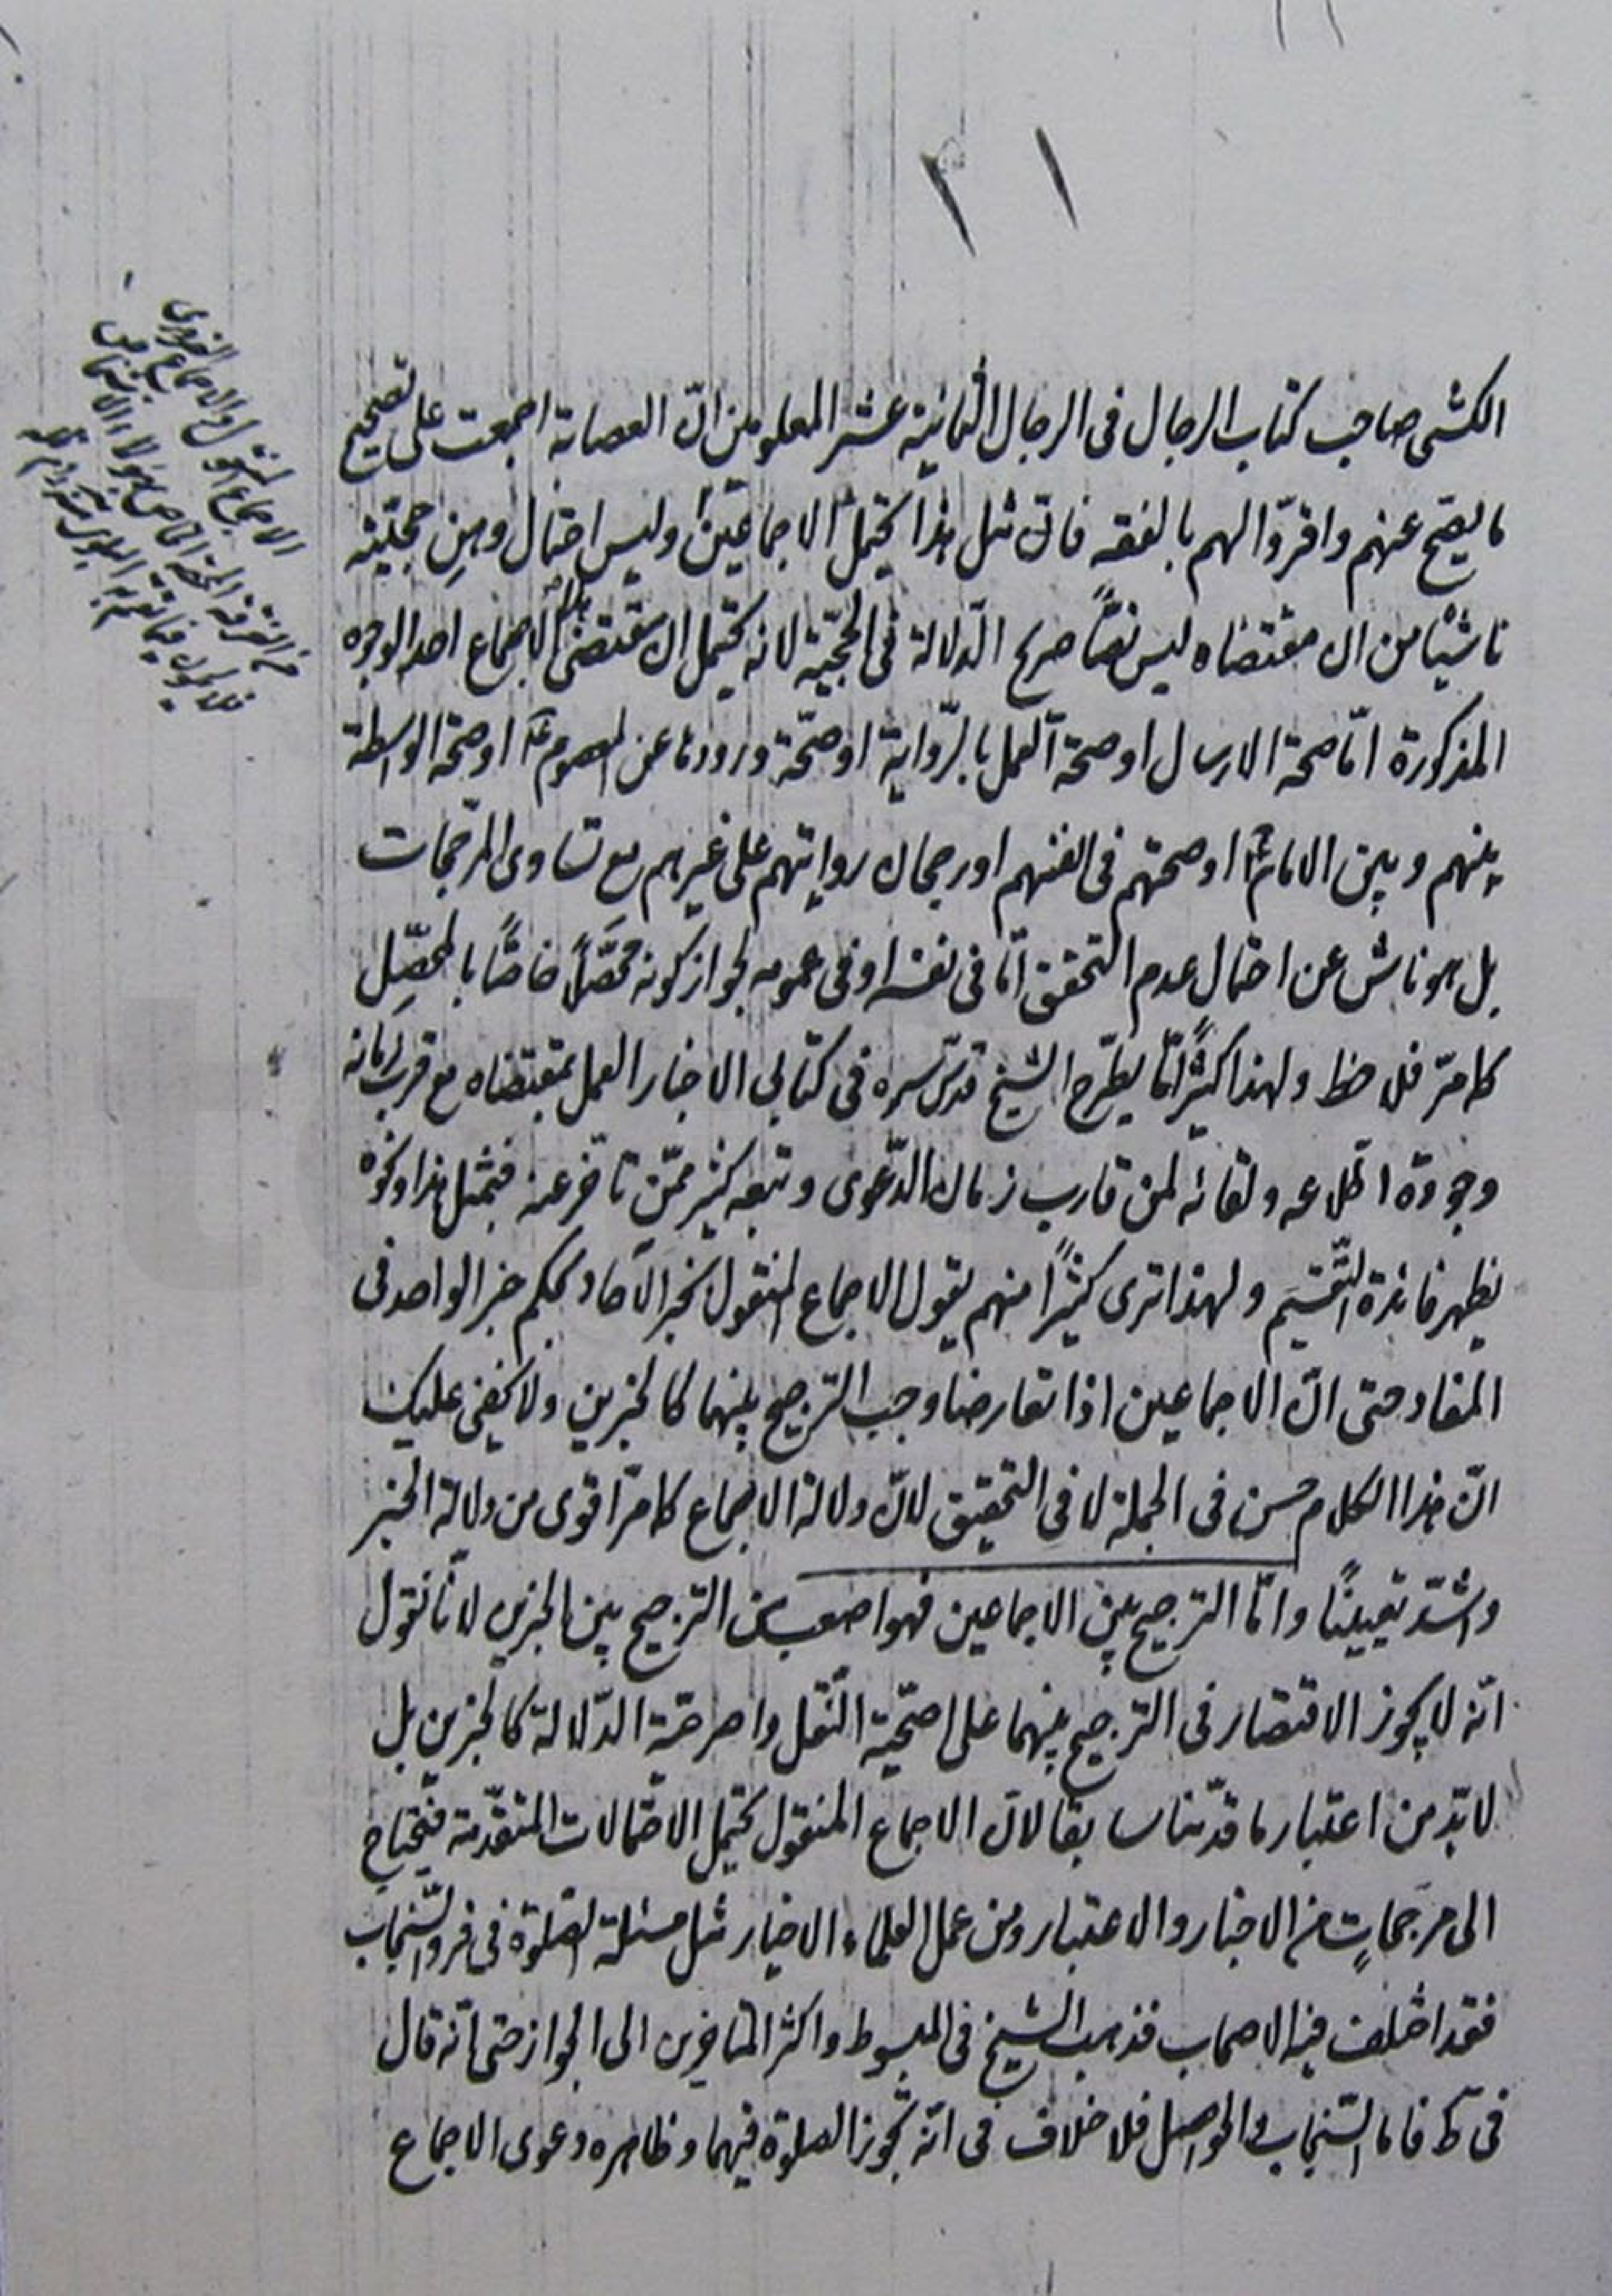 ١١
الكشى صاحب كتاب الرجال فى الرجال الثمانية عشر المعلومين انّ العصابة اجمعت على تصحيح
ما يصح عنهم واقرّوا لهم بالفقه فان مثل هذا يحتمل الاجماعين وليس احتمال وهن حجيّته
ناشيا من ان مقتضاه ليس نصّاً صريح الدّلالة فى الحجّية لانه يحتمل ان مقتضى هذا الاجماع احد الوجوه
المذكورة امّا صحة الارسال او صحة العمل بالرّواية او صحّة ورودها عن المعصوم ع او صحّة الواسطة
بينهم وبين الامام ع او صحتهم فى انفسهم او رجحان روايتهم على غيرهم مع تساوى المرجّحات
بل هو ناش عن احتمال عدم التحقق امّا فى نفسه او فى عمومه لجواز كونه محصَّلاً خاصّاً بالمحصِّل
كما مرّ فلاحظ ولهذا كثيراً مّا يطّرح الشيخ قدّس سره فى كتابى الاخبار العمل بمقتضاه مع قرب زمانه
وجودة اطّلاعه ولقائه لمن قارب زمان الدّعوى وتبعه كثير ممّن تأخّر عنه فبمثل هذا ونحوه
يظهر فائدة التّقسيم ولهذا ترى كثيراً منهم يقول الاجماع المنقول بخبر الآحاد بحكم خبر الواحد فى
المفاد حتى انّ الاجماعين اذا تعارضا وجب الترجيح بينهما كالخبرين ولا يخفى عليك
انّ هذا الكلام حسن فى الجملة لا فى التحقيق لانّ دلالة الاجماع كما مرّ اقوى من دلالة الخبر
واشدّ تعيينًا وامّا الترجيح بين الاجماعين فهو اصعب من الترجيح بين الخبرين لانّا نقول
انّه لا يجوز الاقتصار فى الترجيح بينهما على اصحّية النّقل واصرحيّة الدّلالة كالخبرين بل
لا بدّ من اعتبار ما قدّمنا سابقا لانّ الاجماع المنقول يحتمل الاحتمالات المتقدّمة فيحتاج
الى مرجحاتٍ من الاخبار والاعتبار ومن عمل العلماء الاخيار مثل مسئلة الصّلوة فى فرو السّنجاب
فقد اختلف فيه الاصحاب فذهب الشيخ فى المبسوط واكثر المتأخرين الى الجواز حتى انّه قال
فى ط فاما السّنجاب والحواصل فلا خلاف فى انّه تجوز الصلوة فيهما وظاهره دعوى الاجماع